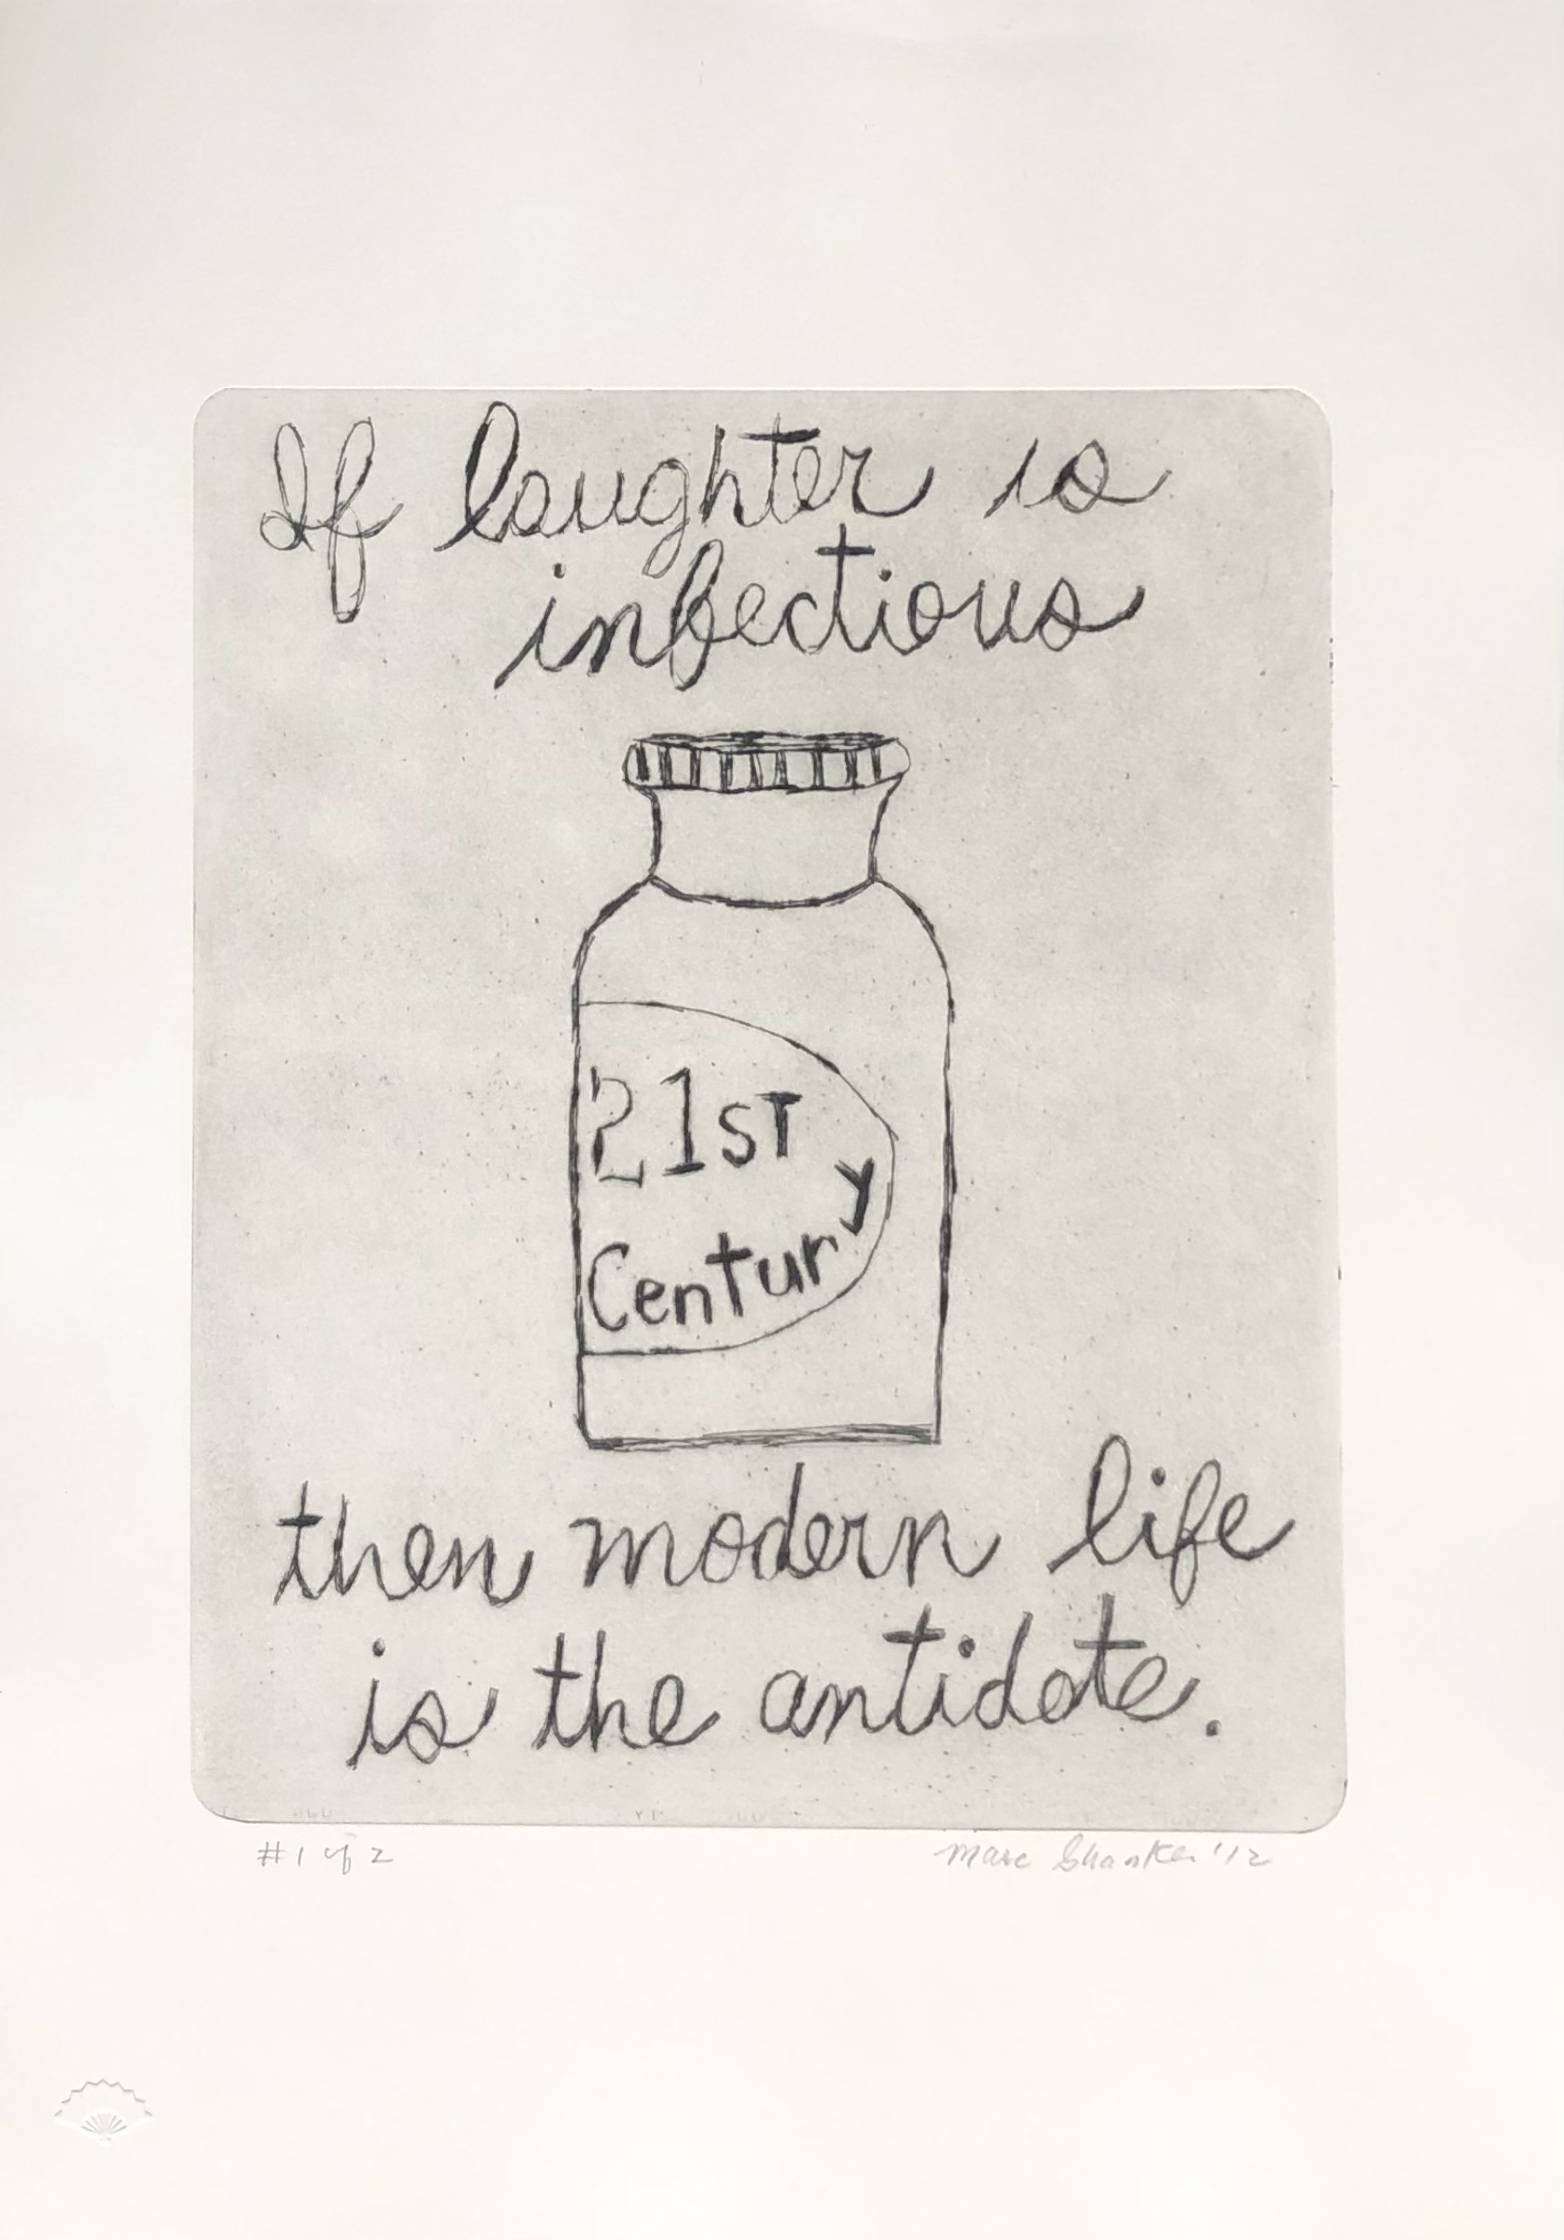 If laughter is
infectious
21st
Century
then modern life
is the antidote.
#1 of 2
Marc Shanker '12